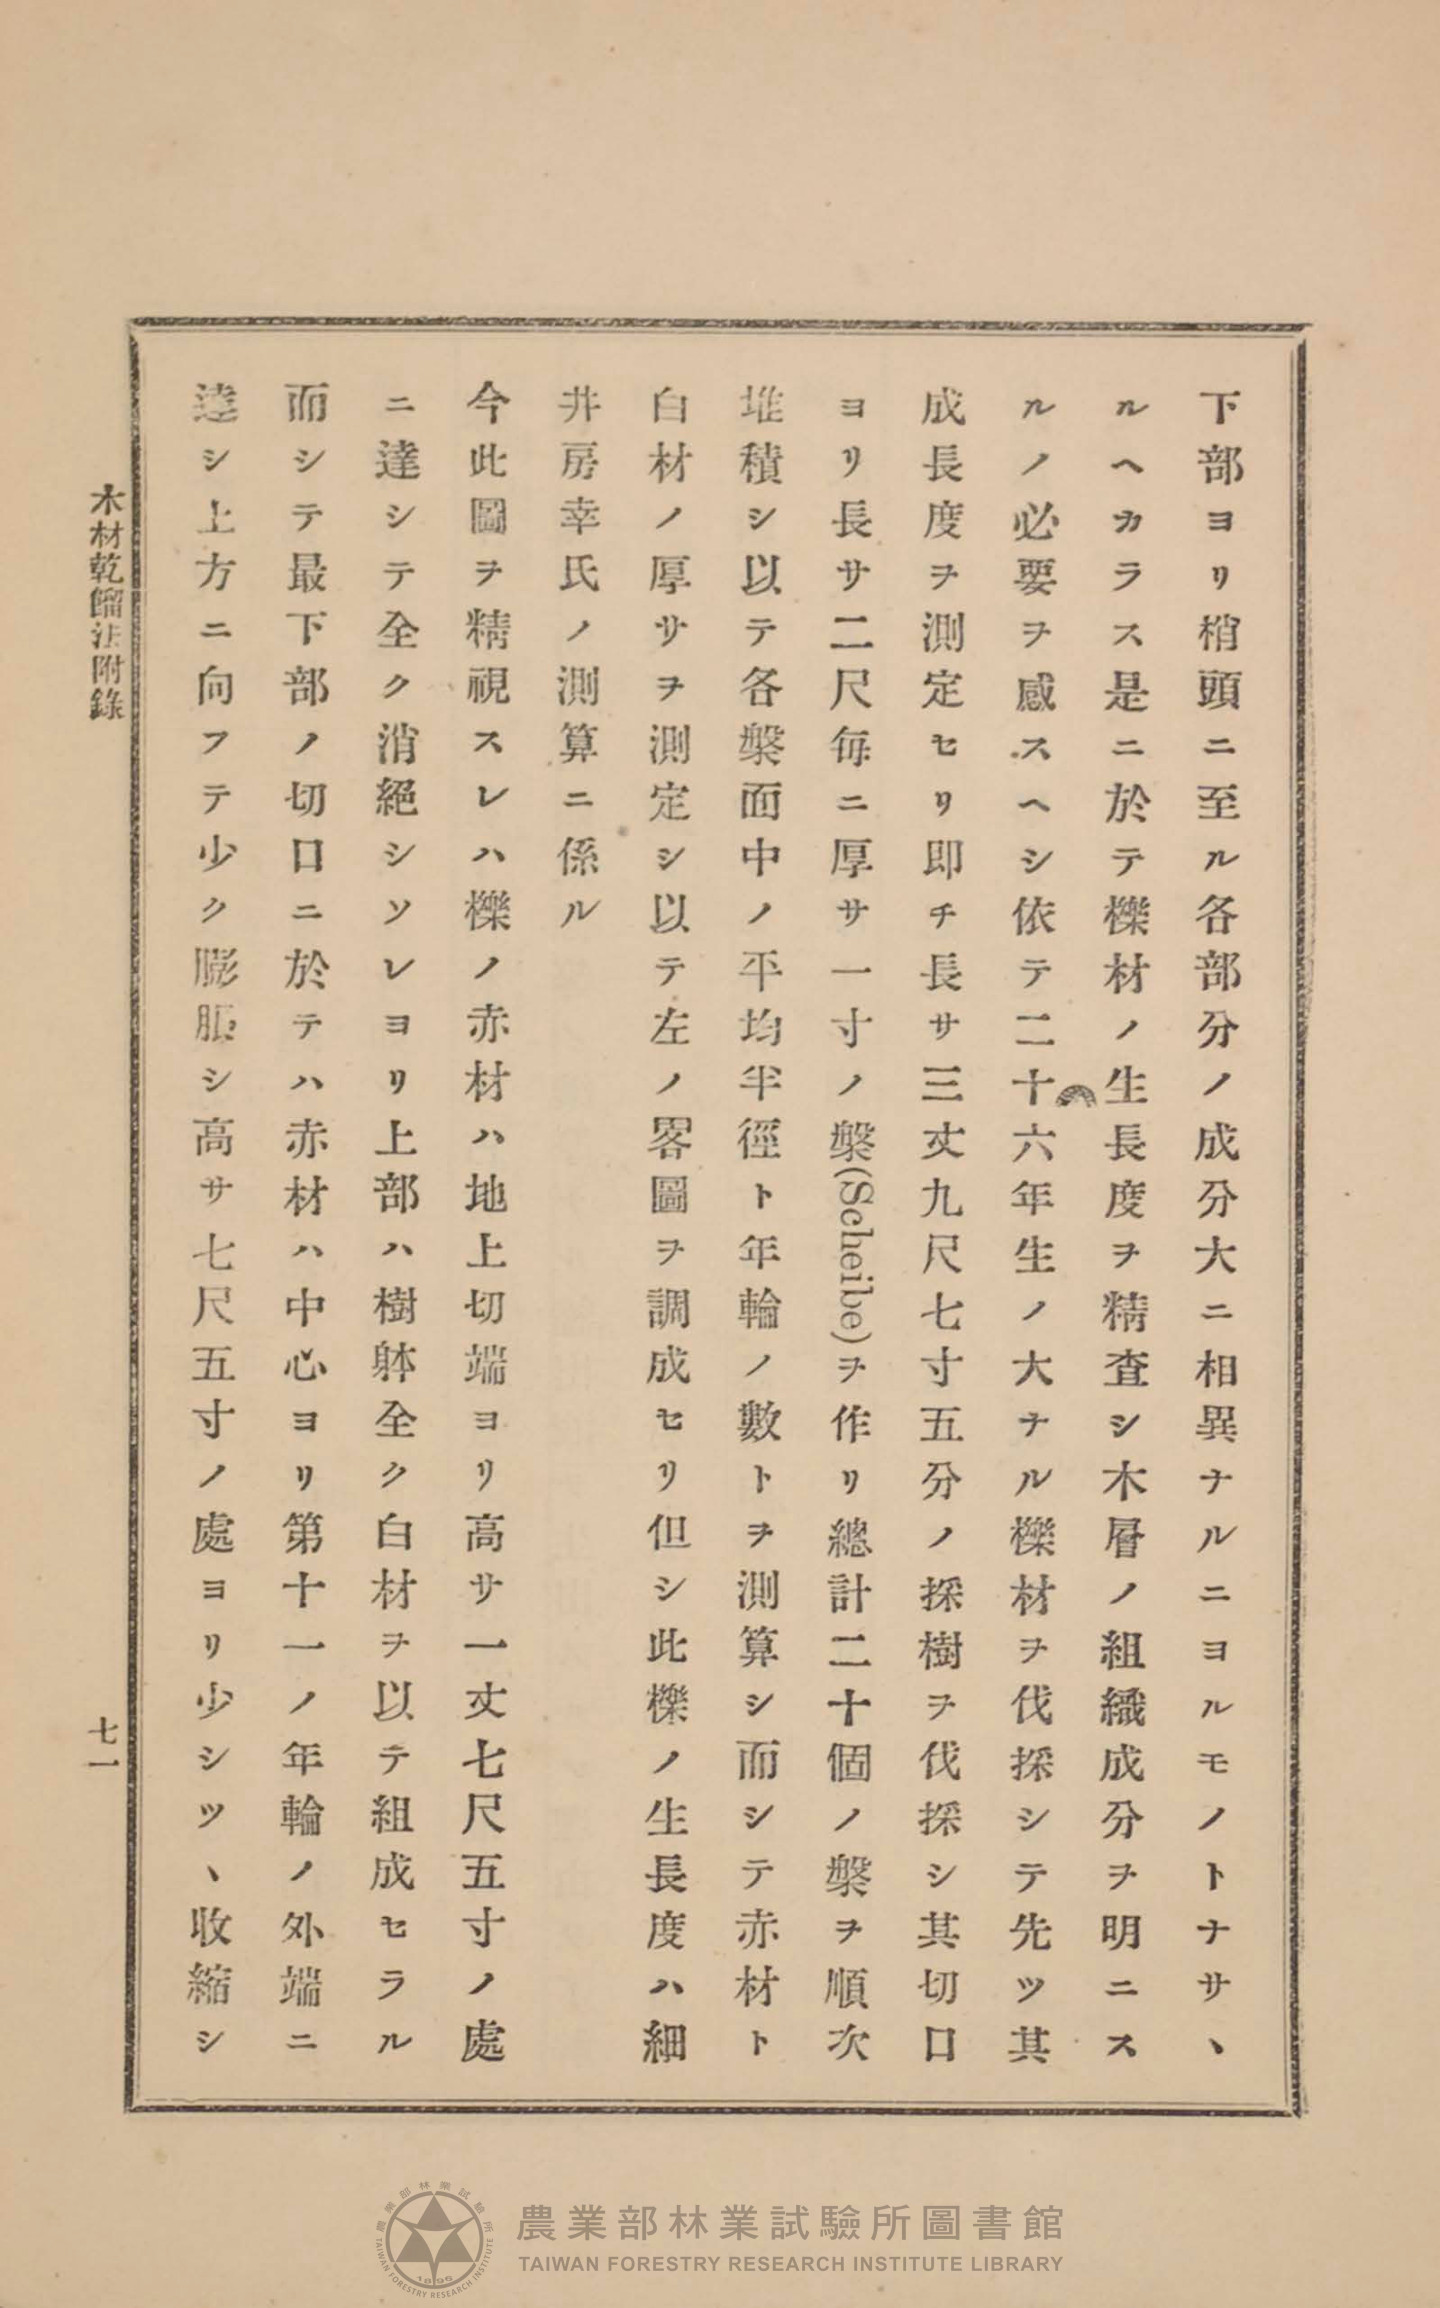 下部ヨリ梢頭ニ至ル各部分ノ成分大ニ相異ナルニヨルモノトナサヽ
ルヘカラス是ニ於テ櫟材ノ生長度ヲ精査シ木層ノ組織成分ヲ明ニス
ルノ必要ヲ感スヘシ依テ二十六年生ノ大ナル櫟材ヲ伐採シテ先ツ其
成長度ヲ測定セリ即チ長サ三丈九尺七寸五分ノ採樹ヲ伐採シ其切口
ヨリ長サ二尺毎ニ厚サ一寸ノ槃(Scheibe)ヲ作リ總計二十個ノ槃ヲ順次
堆積シ以テ各槃面中ノ平均半徑ト年輪ノ數トヲ測算シ而シテ赤材ト
白材ノ厚サヲ測定シ以テ左ノ畧圖ヲ調成セリ但シ此櫟ノ生長度ハ細
井房幸氏ノ測算ニ係ル
今此圖ヲ精視スレハ櫟ノ赤材ハ地上切端ヨリ高サ一丈七尺五寸ノ處
ニ達シテ全ク消絕シソレヨリ上部ハ樹躰全ク白材ヲ以テ組成セラル
而シテ最下部ノ切口ニ於テハ赤材ハ中心ヨリ第十一ノ年輪ノ外端ニ
達シ上方ニ向フテ少ク膨脹シ高サ七尺五寸ノ處ヨリ少シツヽ收縮シ
木材乾餾法附錄
七一
農業部林業試驗所圖書館
TAIWAN FORESTRY RESEARCH INSTITUTE LIBRARY
農業部林業試驗所
TAIWAN FORESTRY RESEARCH INSTITUTE
1896